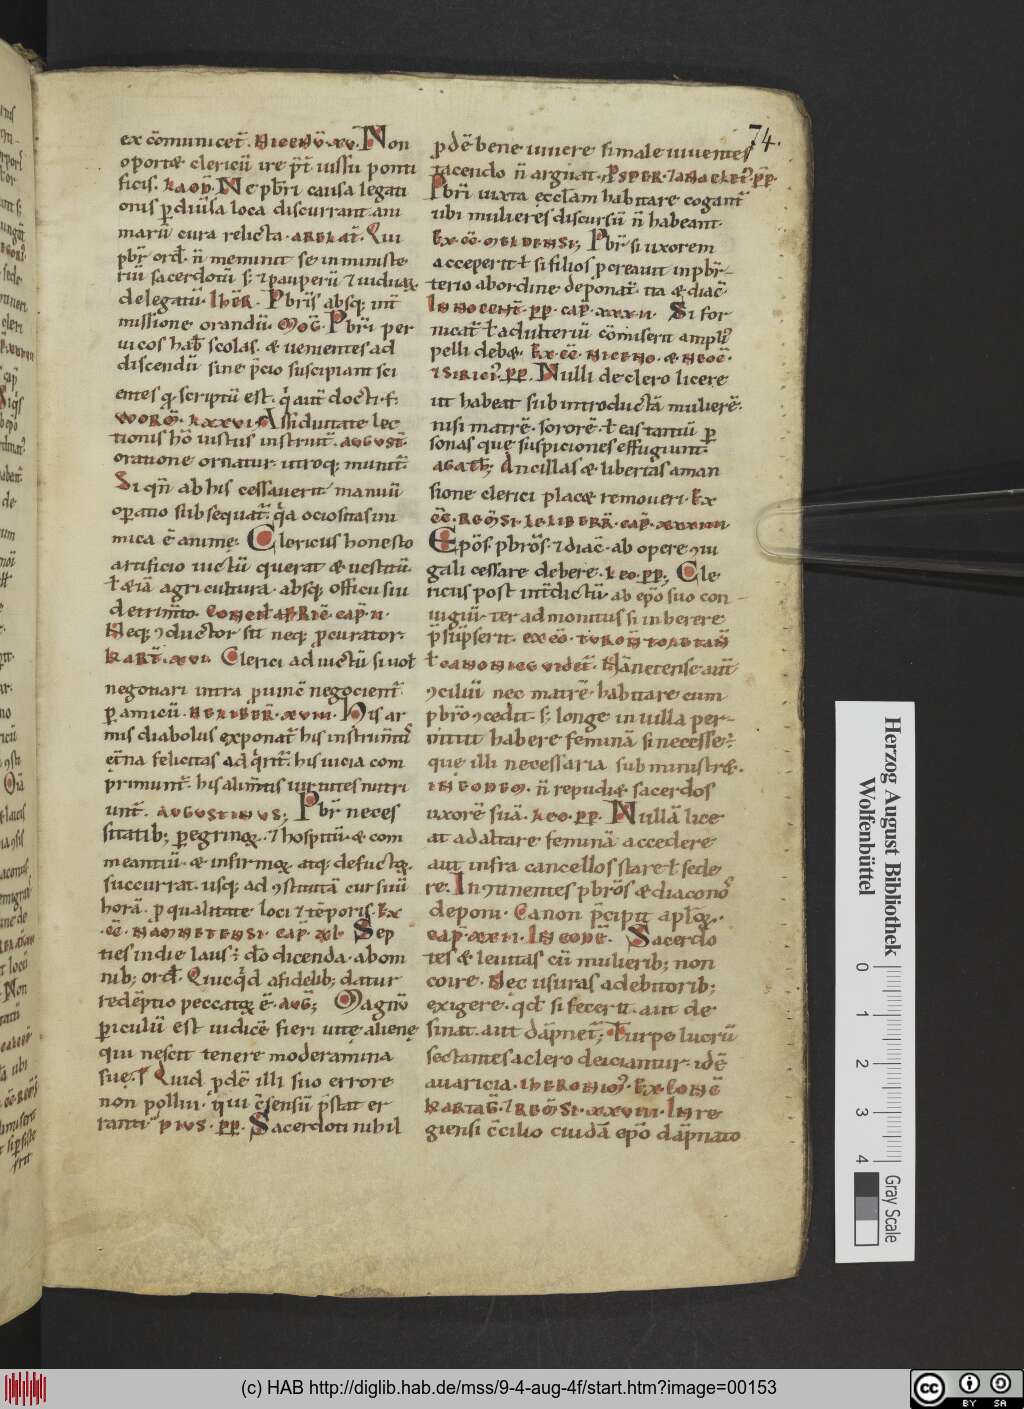 74.
ex cōmunicet̄. NICENV̄. XV. Non
oportet clericū ire p̄t̄ iussū ponti
ficis. LAOD̄. Ne pb̄ri causa legati
onis p diūsa loca discurrant ani
marū cura relicta. Qui
pbr̄ ord̄. n̄ meminit se in ministe
riū sacerdotū s; & pauperū & viduaꝝ
delegatū. Pbr̄is absq; int̄
missione orandū. Pbr̄i per
vicos hab̄ scolas. & venientes ad
discendū sine p̄cio suscipiant sci
entes q scriptū est. q̇ aut̄ docti. f.
WORM̄. LXXVI. Assiduitate lec
tionis hō iustus instruit̄. AVGVST̄.
oratione ornatur. utroq; munit̄.
Si qn̄ ab his cessauerit manuū
opatio subsequat̄. q̇a ociositas ini
mica ē anime. Clericus honesto
artificio uictū querat & uestitū.
ł etiā agricultura. absq; officii sui
detrim̄to. CONCIL AFRIC̄. CAP̄. II.
Neq; ꝯductor sit neq; pcurator.
KART̄. XVI. Clerici ad uictū si uol
negotiari intra puinc̄ negocient̄.
p amicū. XVIII. His ar
mis diabolus exponat̄ his instrum̄tis
et̄na felicitas adq̇rit̄. his uicia com
primunt̄. his alim̄tis uirtutes nutri
unt̄. AVGVSTINVS; Pbr̄ neces
sitatib; pegrinoꝝ. & hospitū. & com
meantiū. & infirmoꝝ. atq; defuctoꝝ.
succurrat. usq; ad ꝯstitutā cursuū
horā. p̄ qualitate loci & tēporis. EX
CC̄. NAMNETENSI. CAP̄. XL. Sep
ties in die laus: dō dicenda. abom
nib; ord̄. Quicq̇d a fidelib; datur
redēptio peccatoꝝ ē. AVG̅; Magnū
piculū est iudicē fieri uite aliene
qui nescit tenere moderamina
sue. Quid pdē illi suo errore
non pollui. q̇ui c̄sensū p̄stat er
ranti. PIVS. PP. Sacerdoti nihil
pdē bene uiuere si male uiuentes
tacendo n̄ arguat. PP.
Pbr̄i iuxta eccl̄am habitare cogant̄
ubi mulieres discursū n̄ habeant.
EX CC̄. MELDENSI; Pbr̄ si uxorem
acceperit ł si filios pcreauit in pbr̄
terio abordine deponat̄. ita & diac̄.
INNOCENT̄. PP. CAP̄. XXXII. Si for
nicat̄ ł adulteriū cōmiserit ampli᾽
pelli debet. EX CC̄. NICENO. & NEOC̄.
& SIRICI. PP. Nulli de clero licere
ut habeat subintroductā mulierē.
nisi matrē. sororē. ł eas tantū p
sonas que suspiciones effugiunt.
AGATH̄; Ancillas & libertas aman
sione clerici placet remoueri. EX
CC̄. REM̄SI. CAP̄. XXXIIII
Ep̄os. pbr̄os. & diac̄. ab opere ꝯiu
gali cessare debere. LEO. PP; Cle
ricus post int̄dictū ab ep̄o suo con
iugiū. ter admonitus si inherere
p̄sūpserit. EX CŌ. TVRON̄
Nānetense aut̄
ꝯciliū nec matrē habitare cum
pbr̄o ꝯcedit. s; longe in uilla per
mittit habere feminā si necesse:
que illi necessaria subministret.
IN EODEM. n̄ repudiet sacerdos
uxorē suā. LEO. PP. Nullā lice
at ad altare feminā accedere
aut infra cancellos stare ł sede
re. In ꝯtinentes pbr̄os & diacon᾽
deponi. Canon p̄cipit apl̄oꝝ.
CAP̄. XXII. IN EODĒ. Sacerdo
tes & leuitas cū mulierib; non
coire. Nec usuras adebitorib;
exigere. q̇d si fecerit. aut de
sinat. aut dāpnet̄; Turpe lucrū
sectantes a clero deiciantur. idē
auaricia. IHERONIM᾽. EX CONC̄
KARTAG̅. & REM̄SI. XXVIII. In re
giensi c̄cilio cuidā ep̄o dāpnato
Herzog August Bibliothek
Wolfenbüttel
0 1 2 3 4
Gray Scale
(c) HAB http://diglib.hab.de/mss/9-4-aug-4f/start.htm?image=00153
CC BY SA